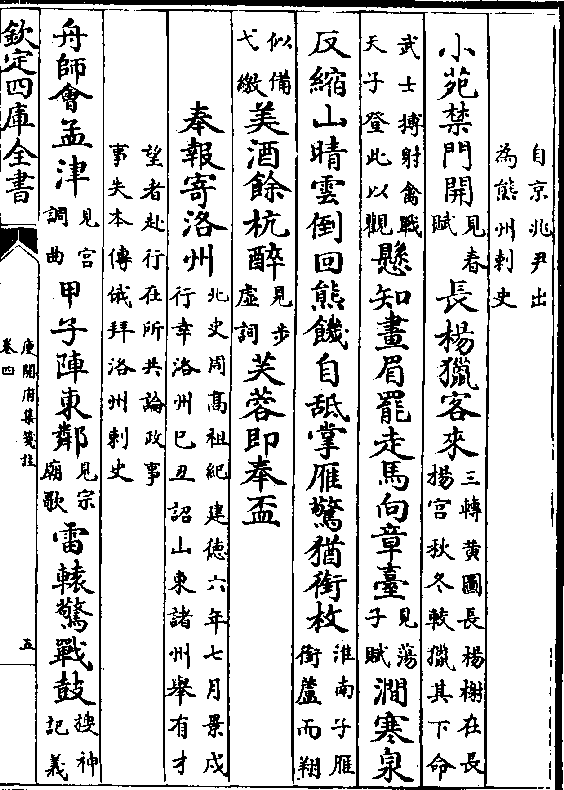 自京兆尹出
為熊州刺史
小苑禁門開見春賦長楊獵客來三輔黃圖長楊榭在長楊宮秋冬較獵其下命
武士搏射禽獸天子登此以觀懸知畫眉罷走馬向章臺見蕩子賦澗寒泉
反縮山晴雲倒回熊饑自舐掌雁驚猶銜枚淮南子雁銜蘆而翔
似備弋繳美酒餘杭醉見步虛詞芙蓉即奉盃
奉報寄洛州北史周高祖紀建德六年七月景戌行幸洛州已丑詔山東諸州舉有才
望者赴行在所共論政事
事失本傳俄拜洛州刺史
舟師會孟津見宮調曲甲子陣東鄰見宗廟歌雷轅驚戰鼓搜神記義
欽定四庫全書
庾開府集箋註
卷四
五